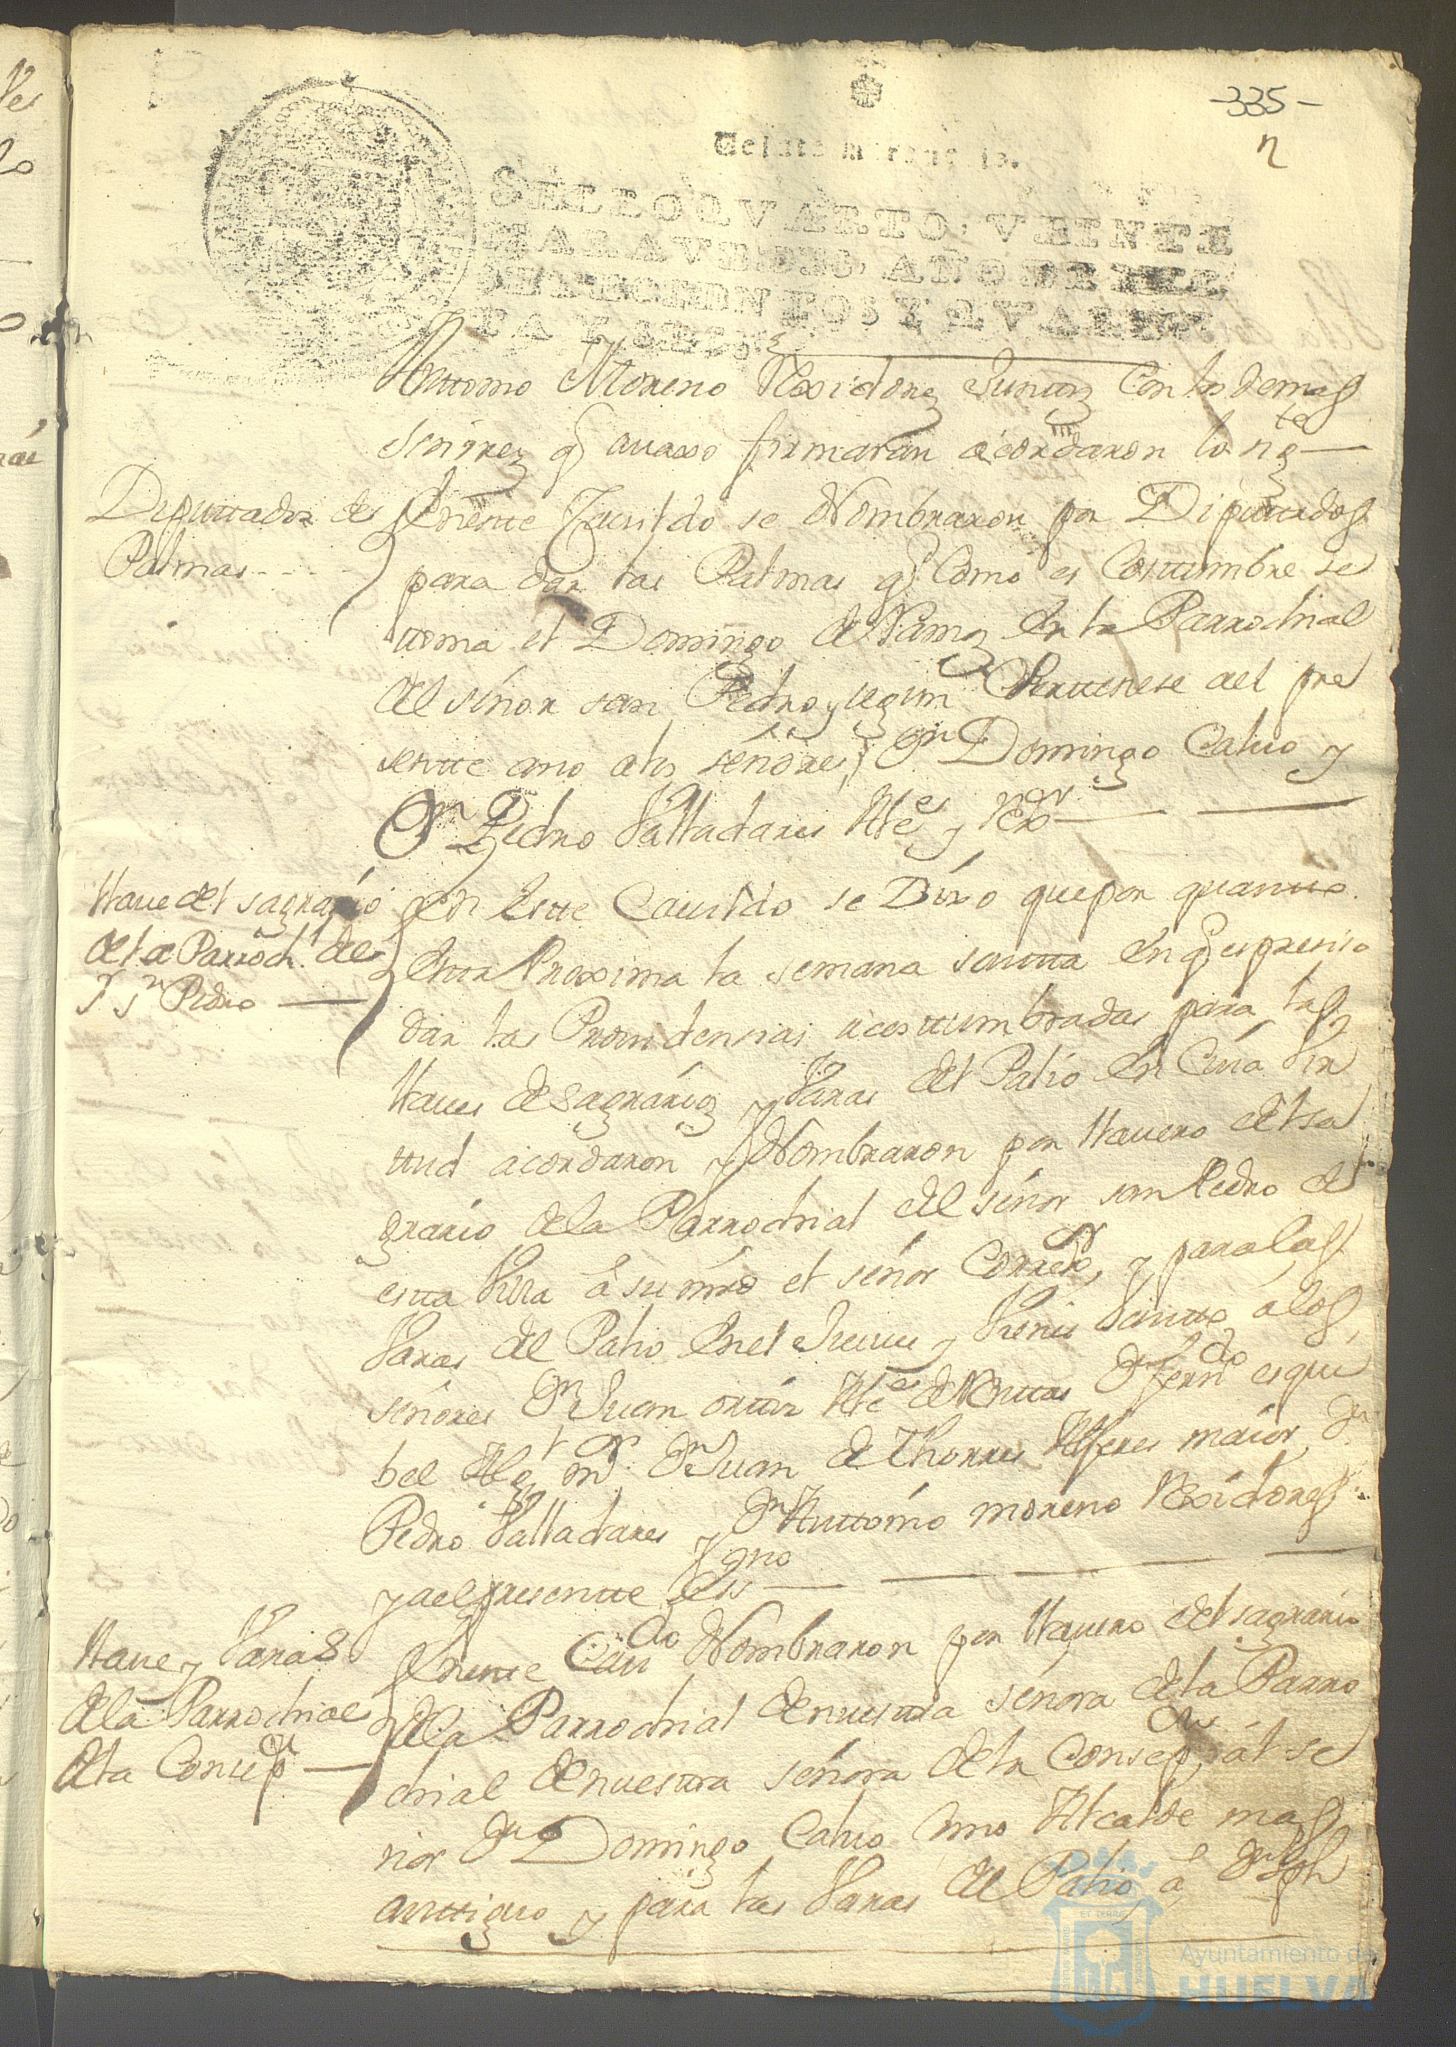 -335-
n
Veinte maravedis.
SELLO QVARTO, VEINTE
MARAVEDIS, AÑO DE MIL
SETECIENTOS Y QVAREN
TA Y
Anttonio Moreno Rexidores Junttos Con los demas
señores q̃ avaxo firmaran acordaron lo sigte
Deputtados de
Palmas
En este Cavildo se Nombraron por Diputtados
para dar las Palmas q̃ Como es Costtumbre se
ttoma el Domingo de Ramos En la Parrochial
del señor san Pedro, segun Perttenese del pre
sentte ano a los señores Dn Domingo Calvo y
Dn Pedro Valladares Alces y Rexor
llave del sagrario
de la Parrochl. del
Sr Sn Pedro
En Estte Cavildo se Dixo que por quantto
Estta Proxima la semana santta En q̃ es presiso
dar las Providensias acosttumbradas para las
llaves de sagrarios y Varas del Palio En Cuia Vir
ttud acordaron y Nombraron por llavero del sa
grario de la Parrochial del señor san Pedro de
estta Villa â su mrd el señor Correxor, y para las
Varas del Palio En el Jueves y Viernes Santto a los
señores Dn Juan orttiz Alce de Renttas Dn Ferndo esqui
bel Alg mr Dn Juan de Thorres Alferes maior, Dn
Pedro Valladares y Dn Anttonio moreno Rexidores
y a el presentte Essno
llave y Varas
de la Parrochial
de la Consepon
En este Cavdo Nombraron por llavero del sagrario
de la Parrochial de nuesttra señora de la Parro
chial de nuesttra señora de la Consepon, al se
ñor Dn Domingo Calvo Como Alcalde mas
anttiguo y para las Varas del Palio â Dn Jph
Ayuntamiento de
HUELVA